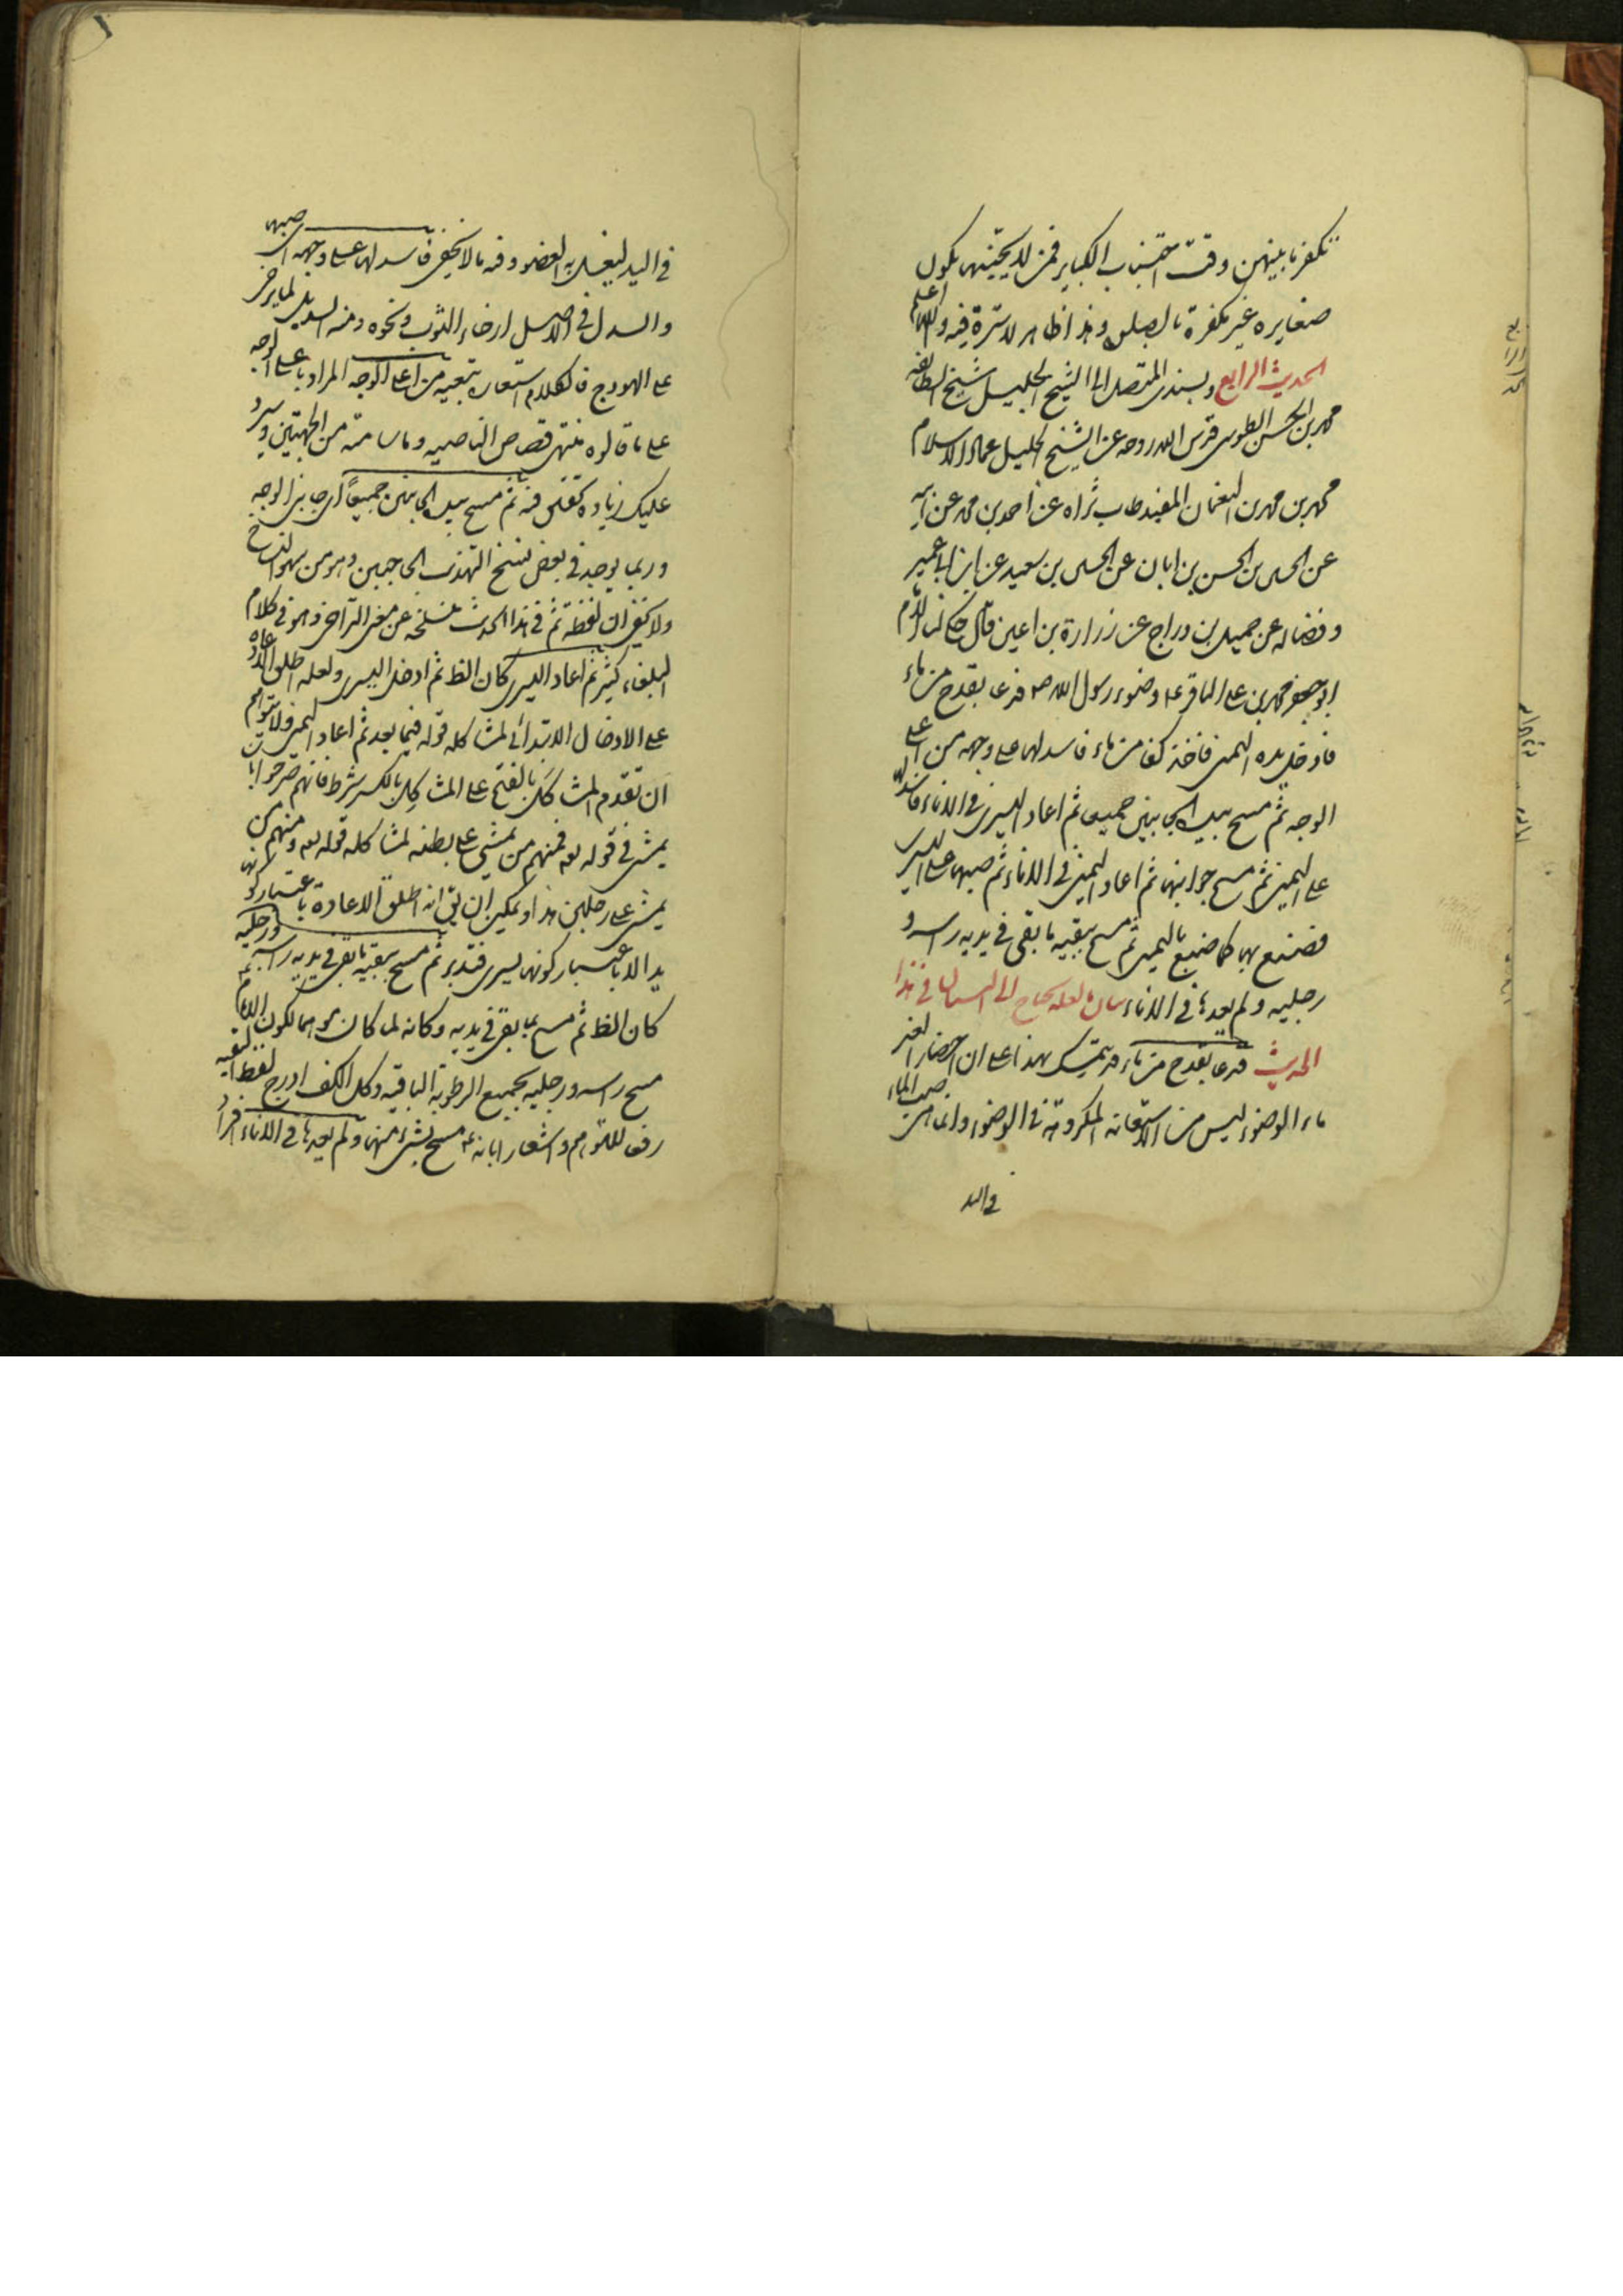 تكفر ما بينهن وقت اجتناب الكباير فمن لا يجتنبها يكون
صغايره غير مكفرة بالصلوة وهذا ظاهر لا سترة فيه والله اعلم
الحديث الرابع وبسندى المتصل الى الشيخ الجليل شيخ الطائفة
محمد بن الحسن الطوسى قدس الله روحه عن الشيخ الجليل عماد الاسلام
محمد بن محمد بن النعمان المفيد طاب ثراه عن احمد بن محمد عن ابيه
عن الحسين بن الحسن بن ابان عن الحسين بن سعيد عن ابن ابى عمير
وفضاله عن جميل بن دراج عن زرارة بن اعين قال حكى لنا الامام
ابو جعفر محمد بن على الباقر ع وضوء رسول الله ص فدعا بقدح من ماء
فادخل يده اليمنى فاخذ كفا من ماء فاسدلها على وجهه من اعلى
الوجه ثم مسح بيده الجانبين جميعا ثم اعاد اليسرى فى الاناء فاسدلها
على اليمنى ثم مسح جوانبها ثم اعاد اليمنى فى الاناء ثم صبها على اليسرى
فصنع بها كما صنع باليمنى ثم مسح ببقيه ما بقى فى يديه راسه و
رجليه ولم يعدها فى الاناء بيان ما لعله يحتاج الى البيان فى هذا
الحديث فدعا بقدح من ماء قد يتمسك بهذا على ان احضار الغير
ماء الوضوء ليس من الاستعانه المكروهة فى الوضوء وانما هى صب الماء
فى اليد
فى اليد ليغسل به العضو وفيه ما لا يخفى فاسدلها على وجهه اى صبها
والسدل فى الاصل ارخاء الثوب ونحوه ومنه السديل لما يرخى
على الهودج فالكلام استعارة تبعيه من اعلى الوجه المراد باعلى الوجه
على ما قالوه منتهى قصاص الناصيه وما سامته من الجهتين وسيرد
عليك زيادة تحقيق فيه ثم مسح بيده الجانبين جميعاً اى جانبى الوجه
وربما يوجد فى بعض نسخ التهذيب الحاجبين وهو من سهو الناسخ
ولا يخفى ان لفظة ثم فى هذا الحديث منسلخه عن معنى التراخى وهو فى كلام
البلغاء كثير ثم اعاد اليسرى كان الظ ثم ادخل اليسرى ولعله اطلق الاعاده
على الادخال الابتدائى لمشاكله قوله فيما بعد ثم اعاد اليمنى ولا يتوهم
ان تقدم المشاكَل بالفتح على المشاكِل بالكسر شرط فانهم صرحوا بان
يمشى فى قوله تعه فمنهم من يمشى على بطنه لمشاكله قوله تعه ومنهم من
يمشى على رجلين هذا ويمكن ان يق انه اطلق الاعادة باعتبار كونها
يدا لا باعتبار كونها يسرى فتدبر ثم مسح ببقيه ما بقى فى يديه راسه ورجليه
كان الظ ثم مسح بما بقى فى يديه وكانه لما كان موهما لكون الامام ع
مسح راسه ورجليه بجميع الرطوبة الباقيه وكل الكف ادرج لفظ البقيه
رفعا للتوهم واشعارا بانه ع مسح بشىء منها ولم يعدها فى الاناء افراد